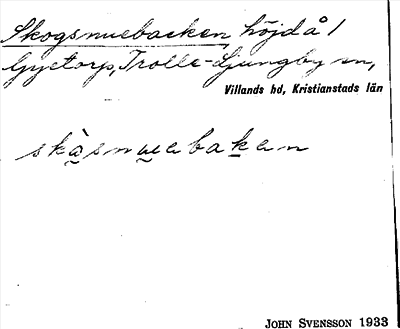 Skogsmuebacken, höjd å 1
Gyetorp, Trolle-Ljungby sn,
Villands hd, Kristianstads län
skàsmuebaken
JOHN SVENSSON 1933